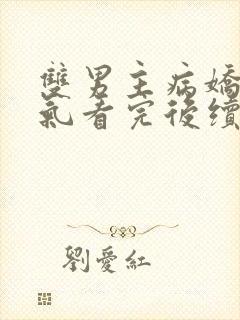 雙男主病嬌
氣看完後續
劉愛紅